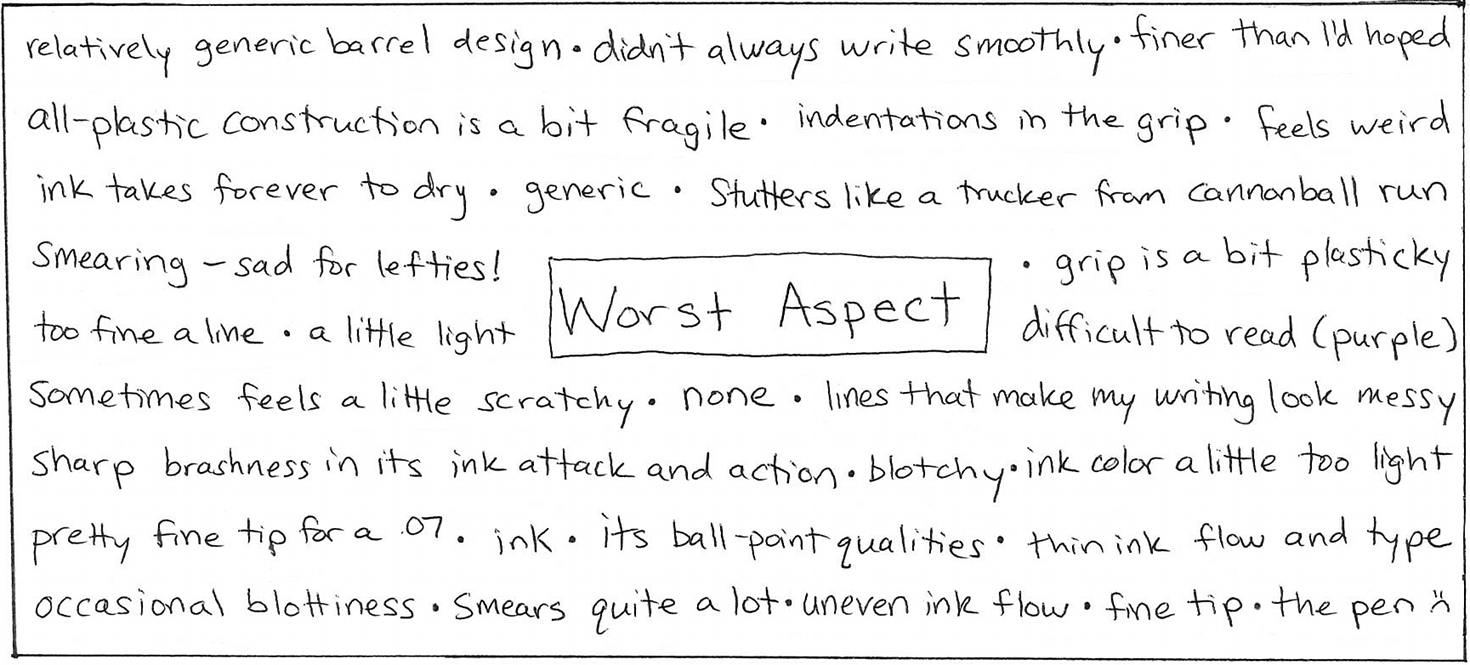 relatively generic barrel design • didn't always write smoothly • finer than I'd hoped
all-plastic construction is a bit fragile • indentations in the grip • feels weird
ink takes forever to dry • generic • Stutters like a trucker from cannonball run
Smearing – sad for lefties!
• grip is a bit plasticky
Worst Aspect
too fine a line • a little light
difficult to read (purple)
Sometimes feels a little scratchy • none • lines that make my writing look messy
Sharp brashness in its ink attack and action • blotchy • ink color a little too light
pretty fine tip for a .07 • ink • its ball-point qualities • thin ink flow and type
occasional blottiness • Smears quite a lot • uneven ink flow • fine tip • the pen :(